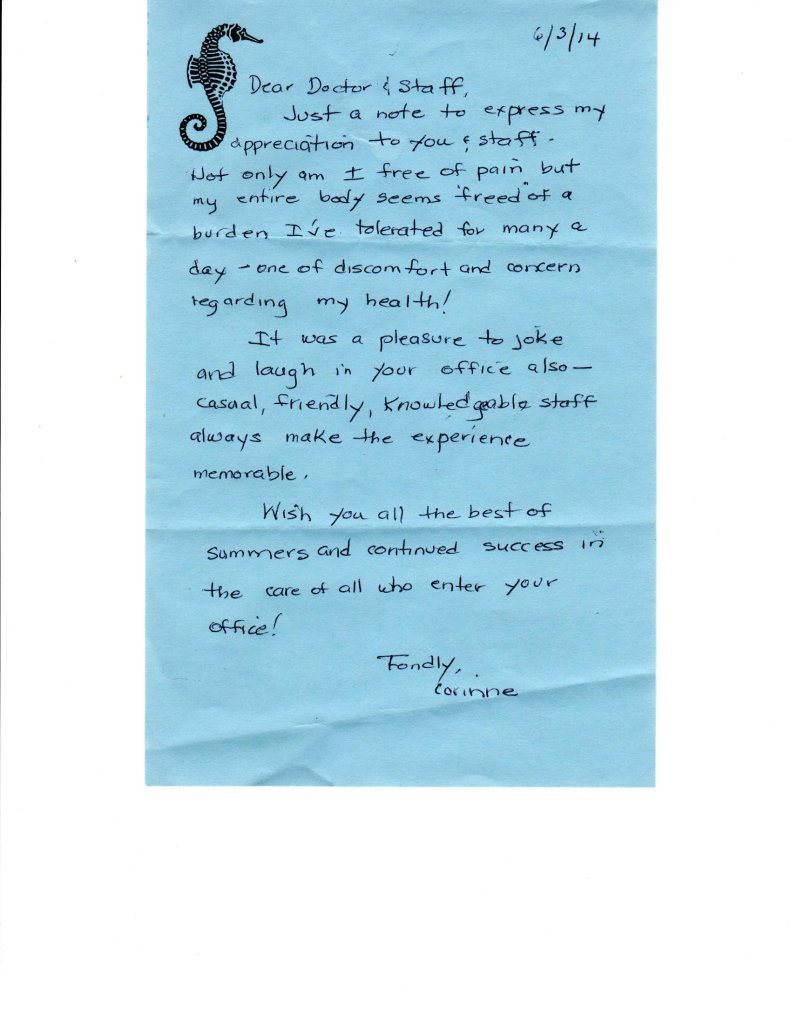 6/3/14
Dear Doctor & Staff,
Just a note to express my
appreciation to you & staff.
Not only am I free of pain but
my entire body seems "freed" of a
burden I've tolerated for many a
day - one of discomfort and concern
regarding my health!
It was a pleasure to joke
and laugh in your office also -
casual, friendly, knowledgeable staff
always make the experience
memorable.
Wish you all the best of
summers and continued success in
the care of all who enter your
office!
Fondly,
Corinne